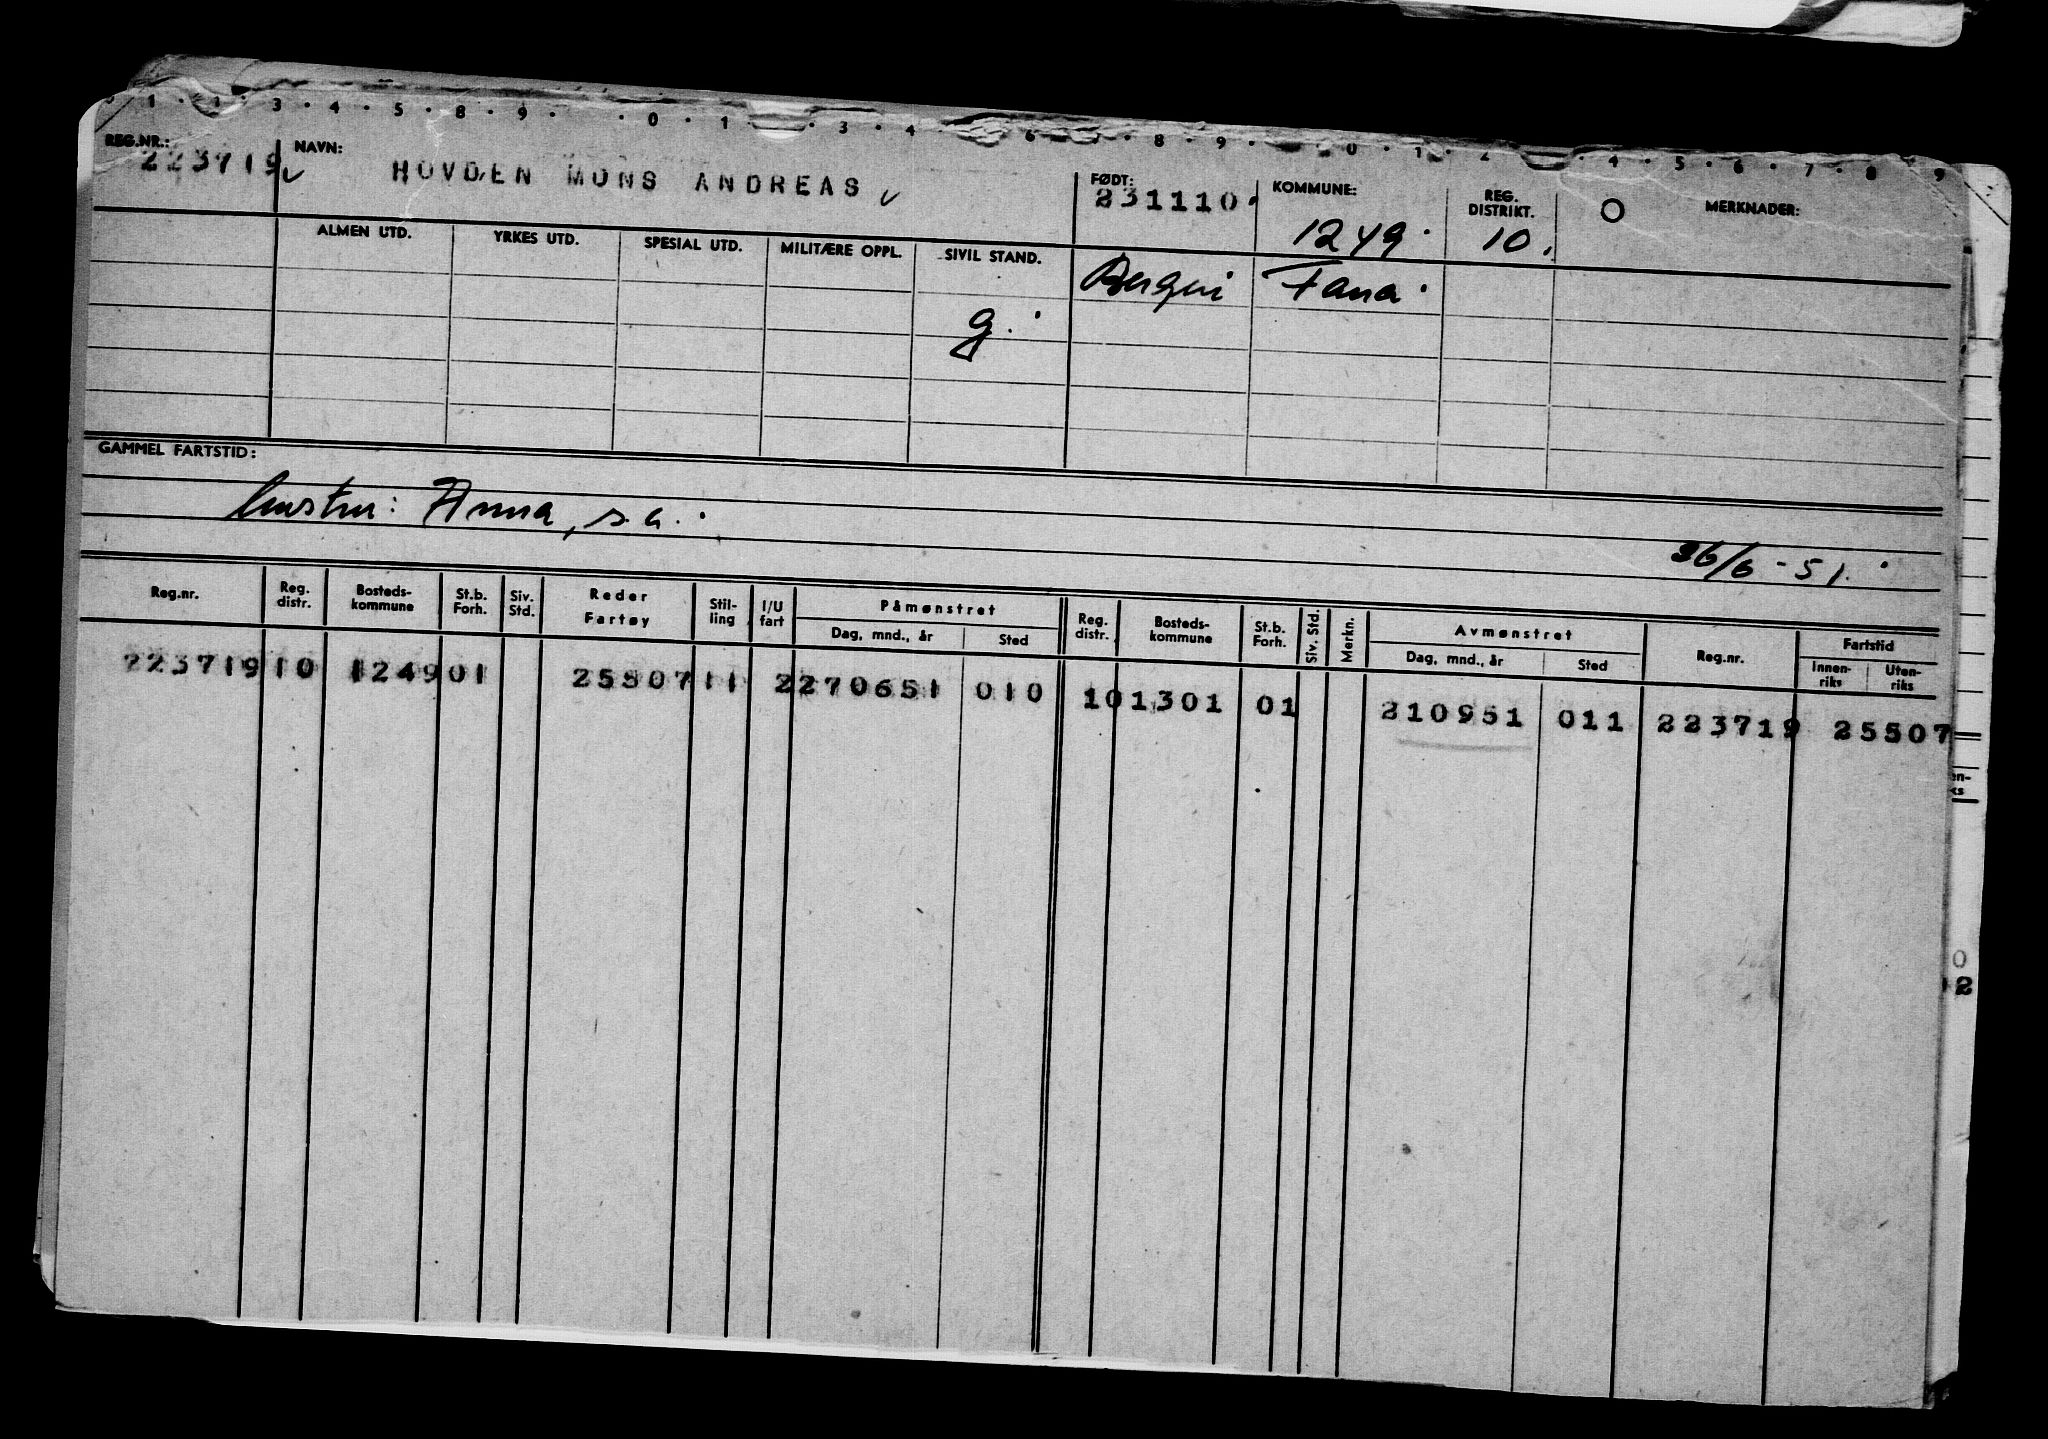 1 · 1 · 3 · 4 · 5 · 8 · 9 · · 0 · 1 · 3 · 4 6 · 8 · 9 · 0 · 1 · 2 · 4 · 5 · 6 · 7 · 8 9
REG.NR.: NAVN: FØDT: KOMMUNE: REG. DISTRIKT. MERKNADER:
223719 HOVDEN MONS ANDREAS 231110 1249 10.
ALMEN UTD. YRKES UTD. SPESIAL UTD. MILITÆRE OPPL. SIVIL STAND.
Bergen Fana
g.
GAMMEL FARTSTID:
hustru: Anna, s.a.
26/6-51.
Reg.nr. Reg. distr. Bosteds-kommune St.b. Forh. Siv. Std. Reder Fartøy Stil-ling I/U fart Påmønstret Dag, mnd., år Sted Reg. distr. Bosteds-kommune St.b. Forh. Siv. Std. Merkn. Avmønstret Dag, mnd., år Sted Reg.nr. Fartstid Innen-riks Uten-riks
223719 10 1249 01 25507 11 2 270651 010 10 1301 01 210951 011 223719 25507
en-
ks
0
2